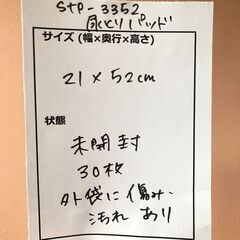 stp-3352
尿とりパッド
サイズ (幅×奥行×高さ)
21×52cm
状態
未開封
30枚
外袋に傷み・
汚れあり